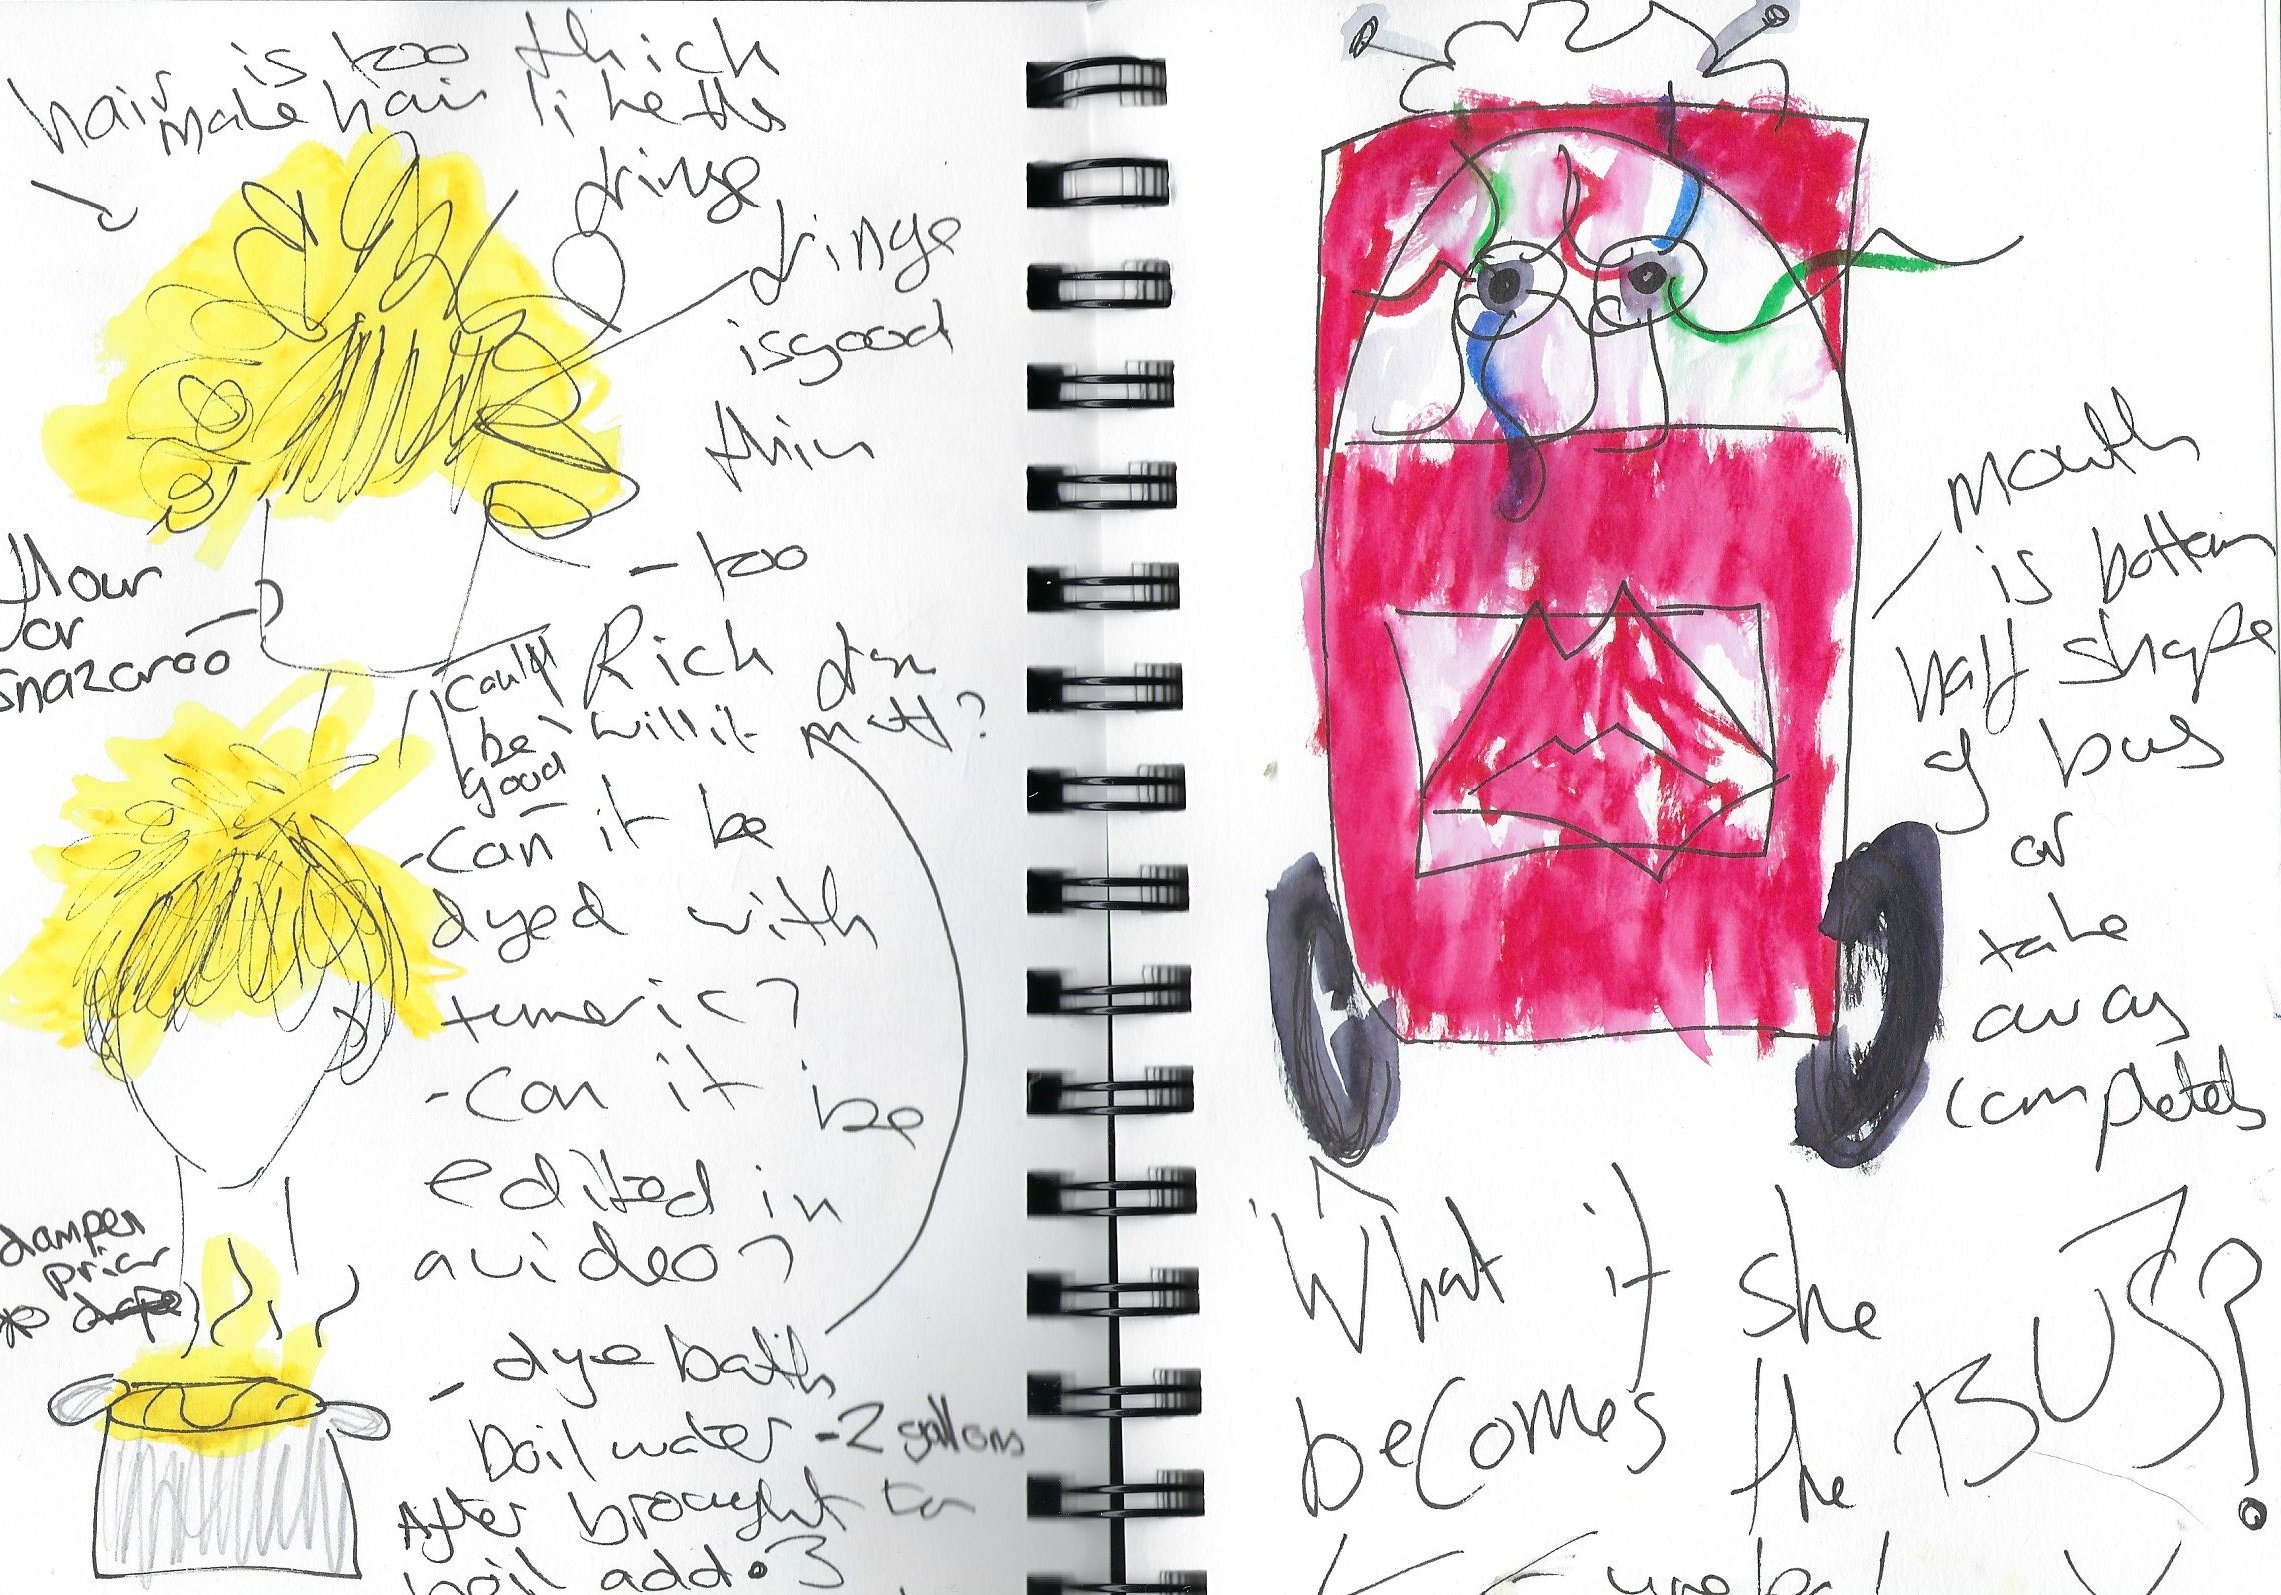 hair is too thick
make hair like the
fringe
fringe
is good
thin
- too
Rich
flour
or
snazaroo
could
be
good
will it
matt?
- can it be
dyed with
tumeric?
- can it be
edited in
a video?
dampen
prior
- dye bath
boil water - 2 gallons
After brought to
boil add • 3
mouth
is bottom
half shape
of bus
or
take
away
completely
What if she
becomes the BUS?